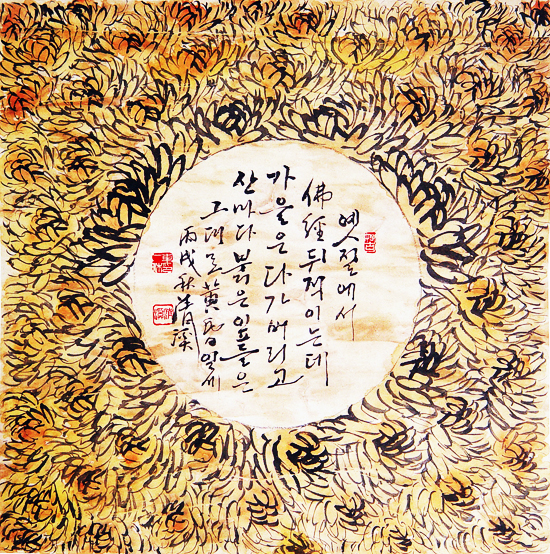 옛절에서
佛經 뒤적이는데
가을은 다가버리고
산마다 붉은 잎들은
그대로 黃昏일세
丙戌秋